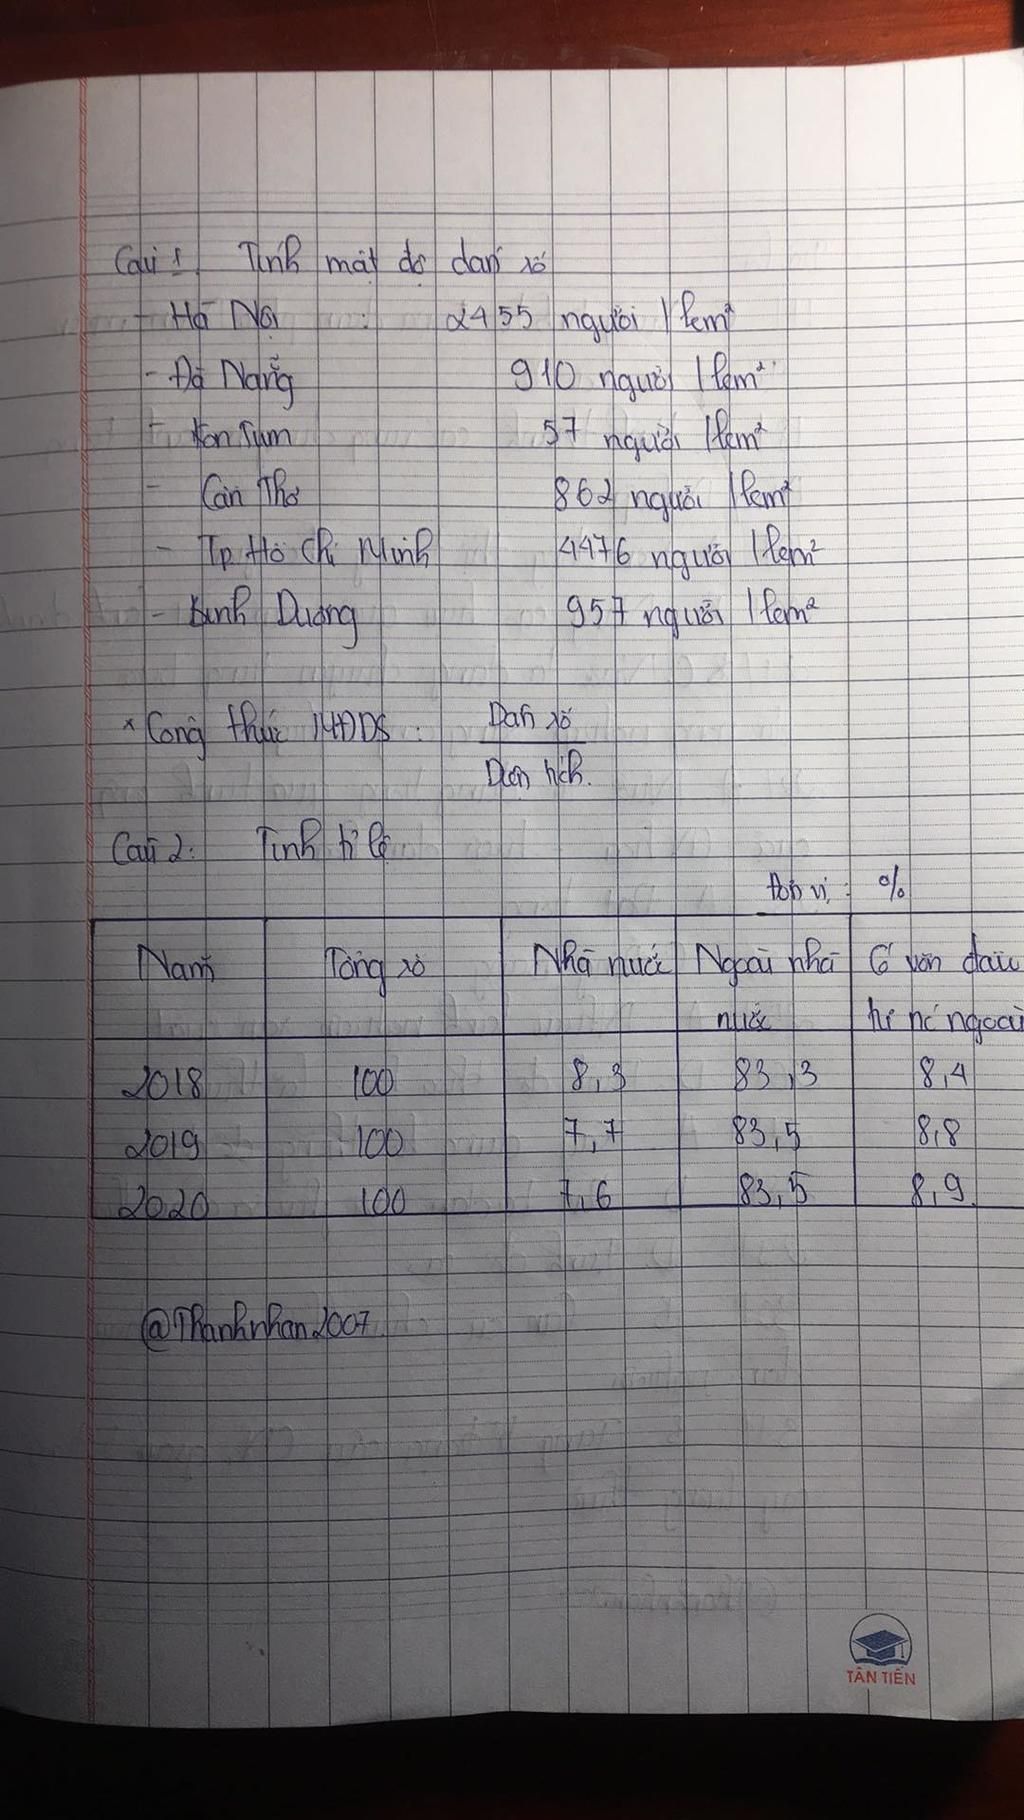 Câu 1. Tính mật độ dân số
- Hà Nội : 2455 người / km²
- Đà Nẵng 910 người / km²
- Kon Tum 57 người / km²
- Cần Thơ 862 người / km²
- Tp Hồ Chí Minh 4476 người / km²
- Bình Dương 957 người / km²
* Công thức MĐDS : Dân số
Diện tích.
Câu 2: Tính tỉ lệ
Đơn vị : %
Năm Tổng số Nhà nước Ngoài nhà nước Có vốn đầu tư nc ngoài
2018 100 8,3 83,3 8,4
2019 100 7,7 83,5 8,8
2020 100 7,6 83,5 8,9
@Thanhnhan2007
TÂN TIẾN